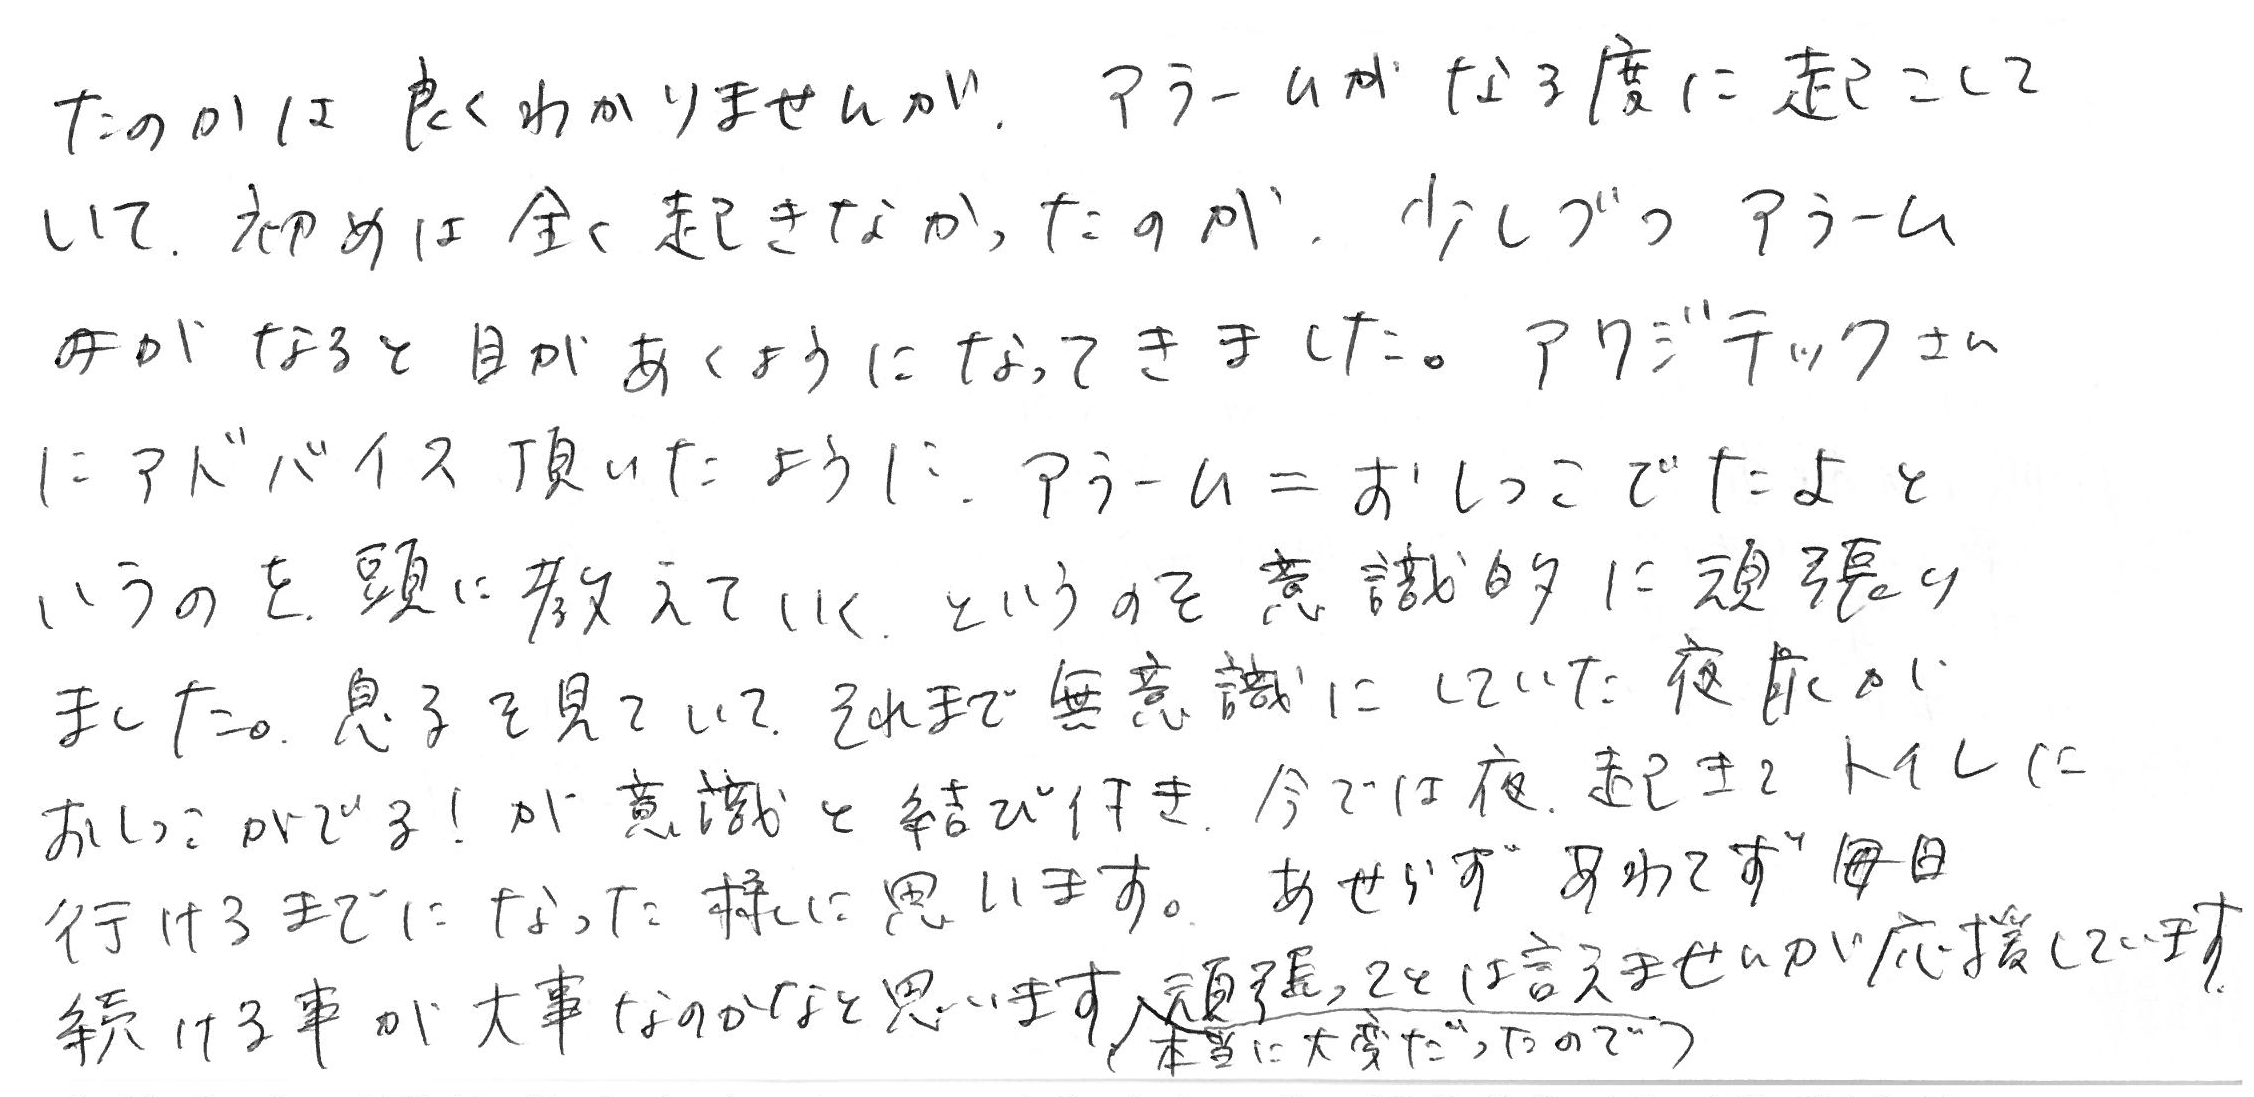 たのかは良くわかりませんが、アラームがなる度に起こして
いて、初めは全く起きなかったのが、少しづつアラーム
がなると目があくようになってきました。アワジテックさん
にアドバイス頂いたように、アラーム=おしっこでたよと
いうのを、頭に教えていく、というのを意識的に頑張り
ました。息子を見ていて、それまで無意識にしていた夜尿が
おしっこがでる!が意識と結び付き、今では夜、起きてトイレに
行けるまでになった様に思います。あせらずあわてず毎日
続ける事が大事なのかなと思います、頑張ってとは言えませんが応援しています。
本当に大変だったので